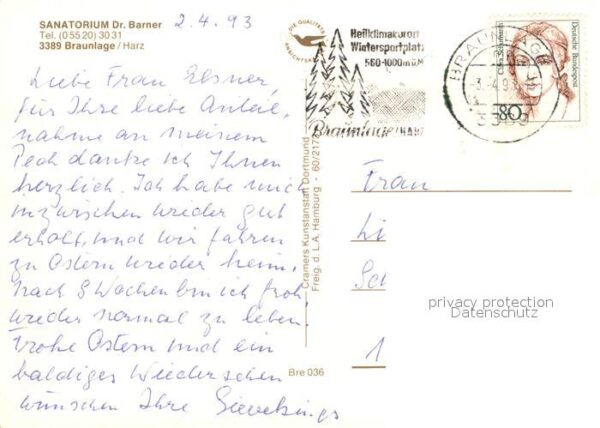 SANATORIUM Dr. Barner
Tel. (0 55 20) 30 31
3389 Braunlage / Harz
2.4.93
Liebe Frau Elsner,
für Ihre liebe Anteil,
nahme an meinem
Pech danke ich Ihnen
herzlich. Ich habe mich
inzwischen wieder gut
erholt, und wir fahren
zu Ostern wieder heim.
Nach 9 Wochen bin ich froh,
wieder normal zu leben.
Frohe Ostern und ein
baldiges Wiedersehen
wünschen Ihre Sievekings
DIE QUALITÄTS
Heilklimakurort
Wintersportplatz
560-1000m ü.M
Braunlage/HARZ
BRAUNLAGE
3.-4.9
3389
Deutsche Bundespost
Clara Schumann
80
Cramers Kunstanstalt Dortmund
Freig. d. L.A. Hamburg - 60/217
Bre 036
Frau
Li
Sc
1
privacy protection
Datenschutz